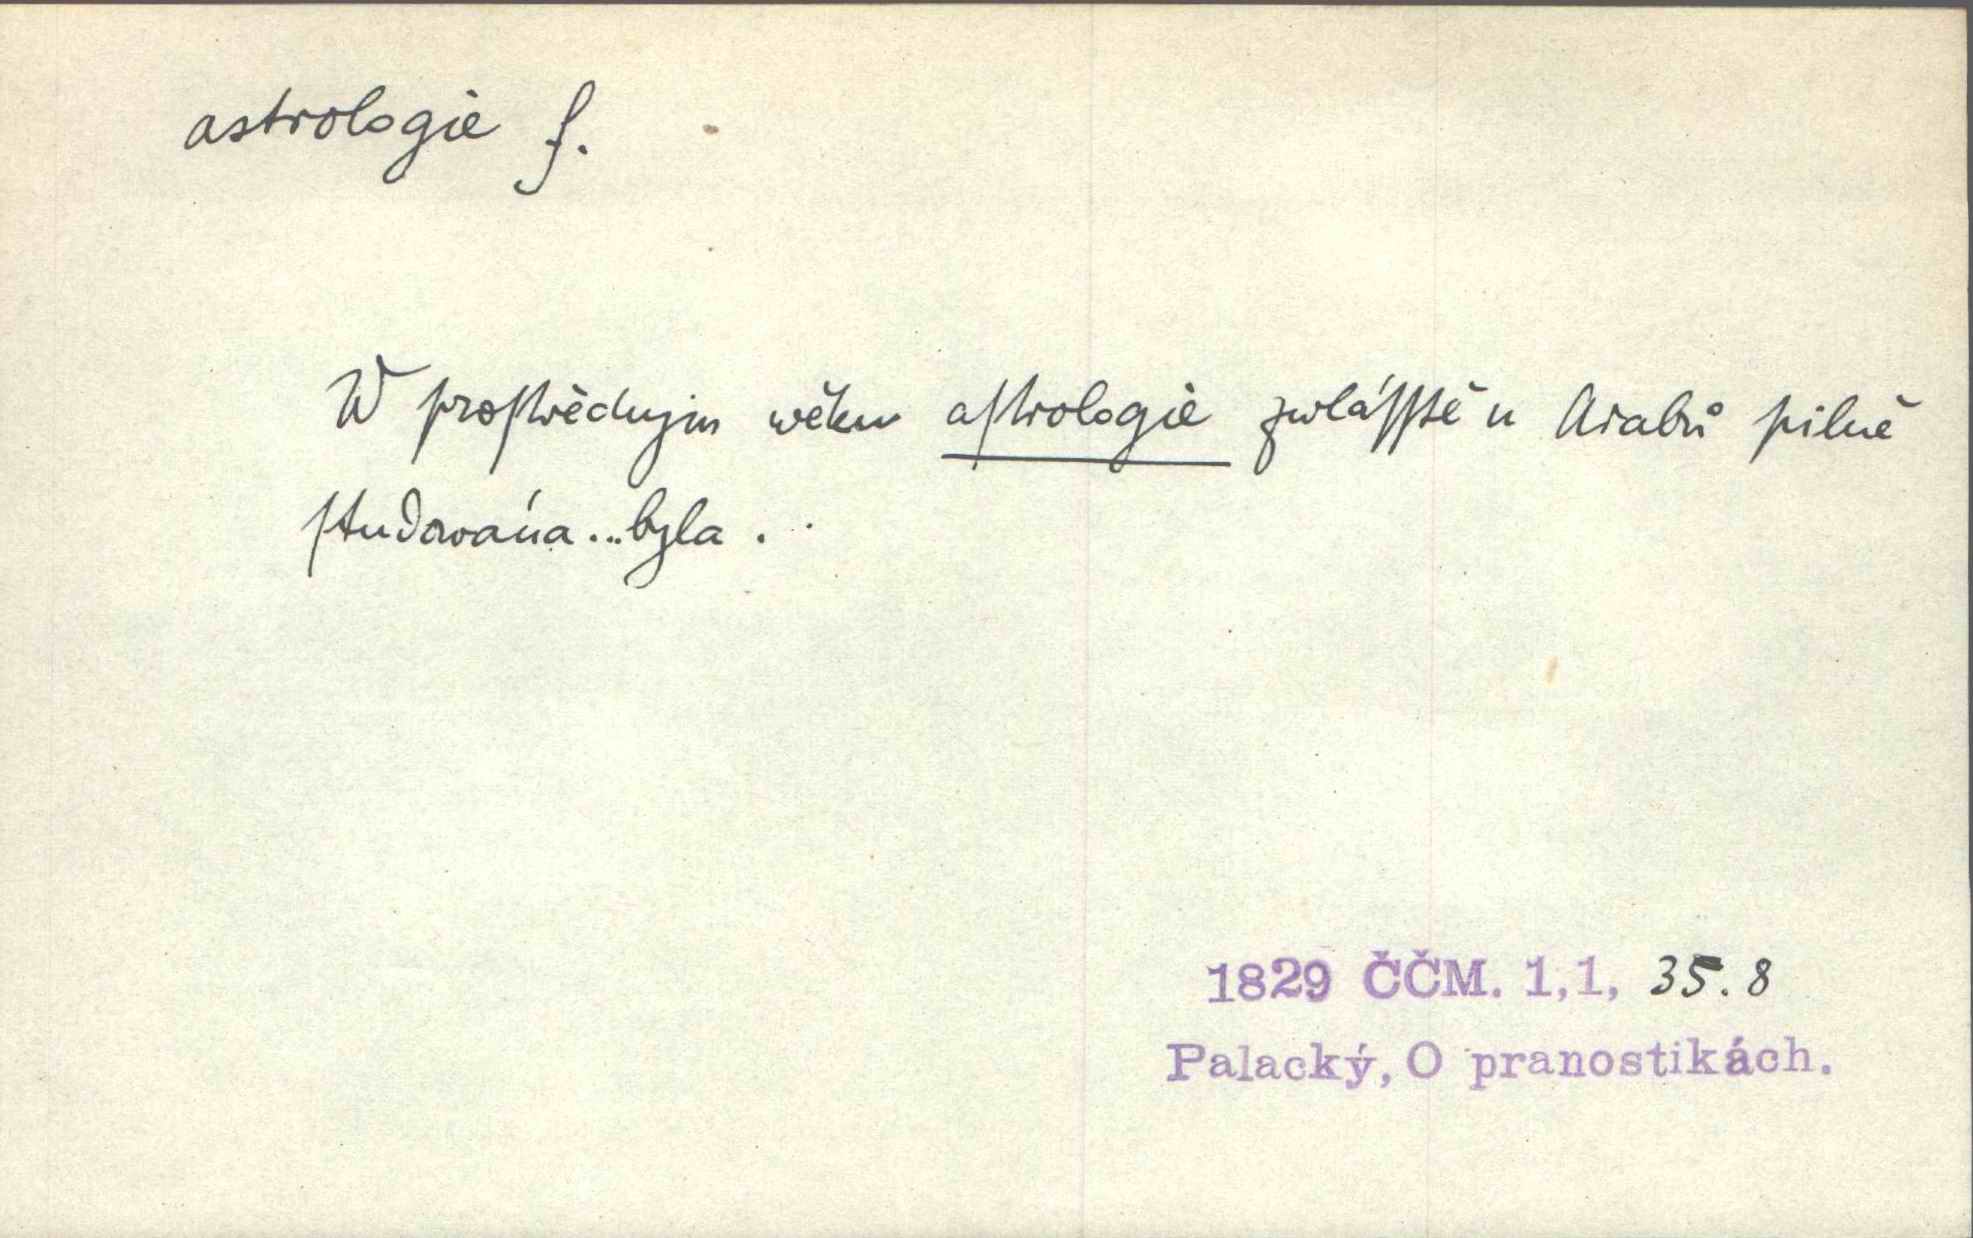 astrologie f.
W proſtřednjm wěku aſtrologie zwláſſtě u Arabů pilně
ſtudowána...byla.
1829 ČČM. 1,1, 35.8
Palacký, O pranostikách.